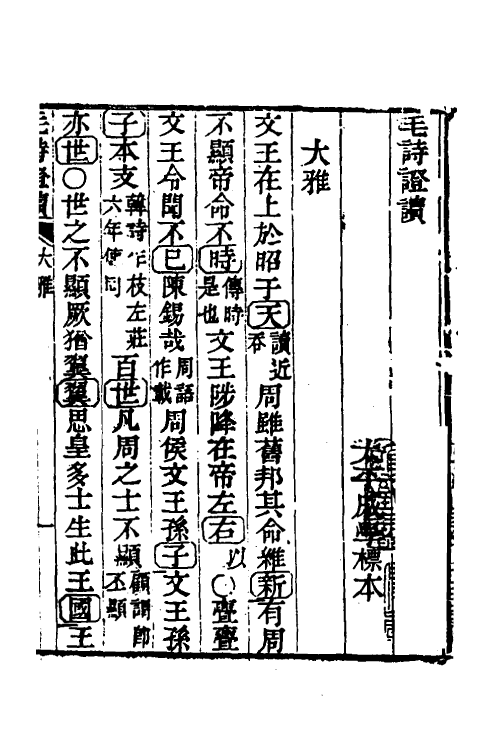 毛詩證讀
太平戚學標本
大雅
文王在上於昭于天讀近吞周雖舊邦其命維新有周
不顯帝命不時傳時是也文王陟降在帝左右以〇亹亹
文王令聞不已陳錫哉周語作載周侯文王孫子文王孫
子本支韓詩作枝左莊六年同百世凡周之士不顯顧謂卽丕顯
亦世〇世之不顯厥猶翼翼思皇多士生此王國王
毛詩證讀 大雅 一